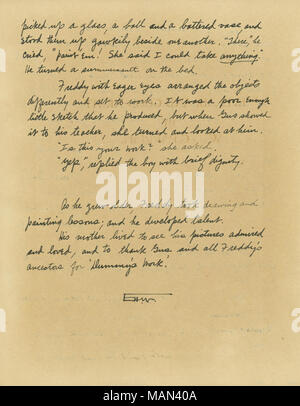 picked up a glass, a ball and a battered vase and
stood them up gawkily beside one another. "There," he
cried, "paint 'em! She said I could take anything."
He turned a summersault on the bed.
Freddy with eager eyes arranged the objects
differently and set to work. It was a poor enough
little sketch that he produced, but when Gus showed
it to his teacher, she turned and looked at him.
"Is this your work?" she asked.
"Yep," replied the boy with brief dignity.
As he grew older Freddy took drawing and
painting lessons; and he developed talent.
His mother lived to see his pictures admired
and loved, and to thank Gus and all Freddy's
ancestors for "Mummy's Work".
alamy
Image ID: MAN40A
www.alamy.com